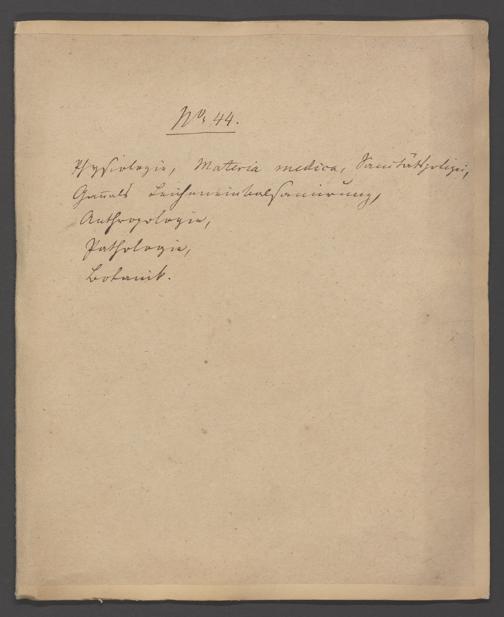 No 44.
Physiologie, Materia medica, Sanitätspolizei,
Gan̄als Leicheneinbalsamirung,
Anthropologie,
Pathologie,
Botanik.